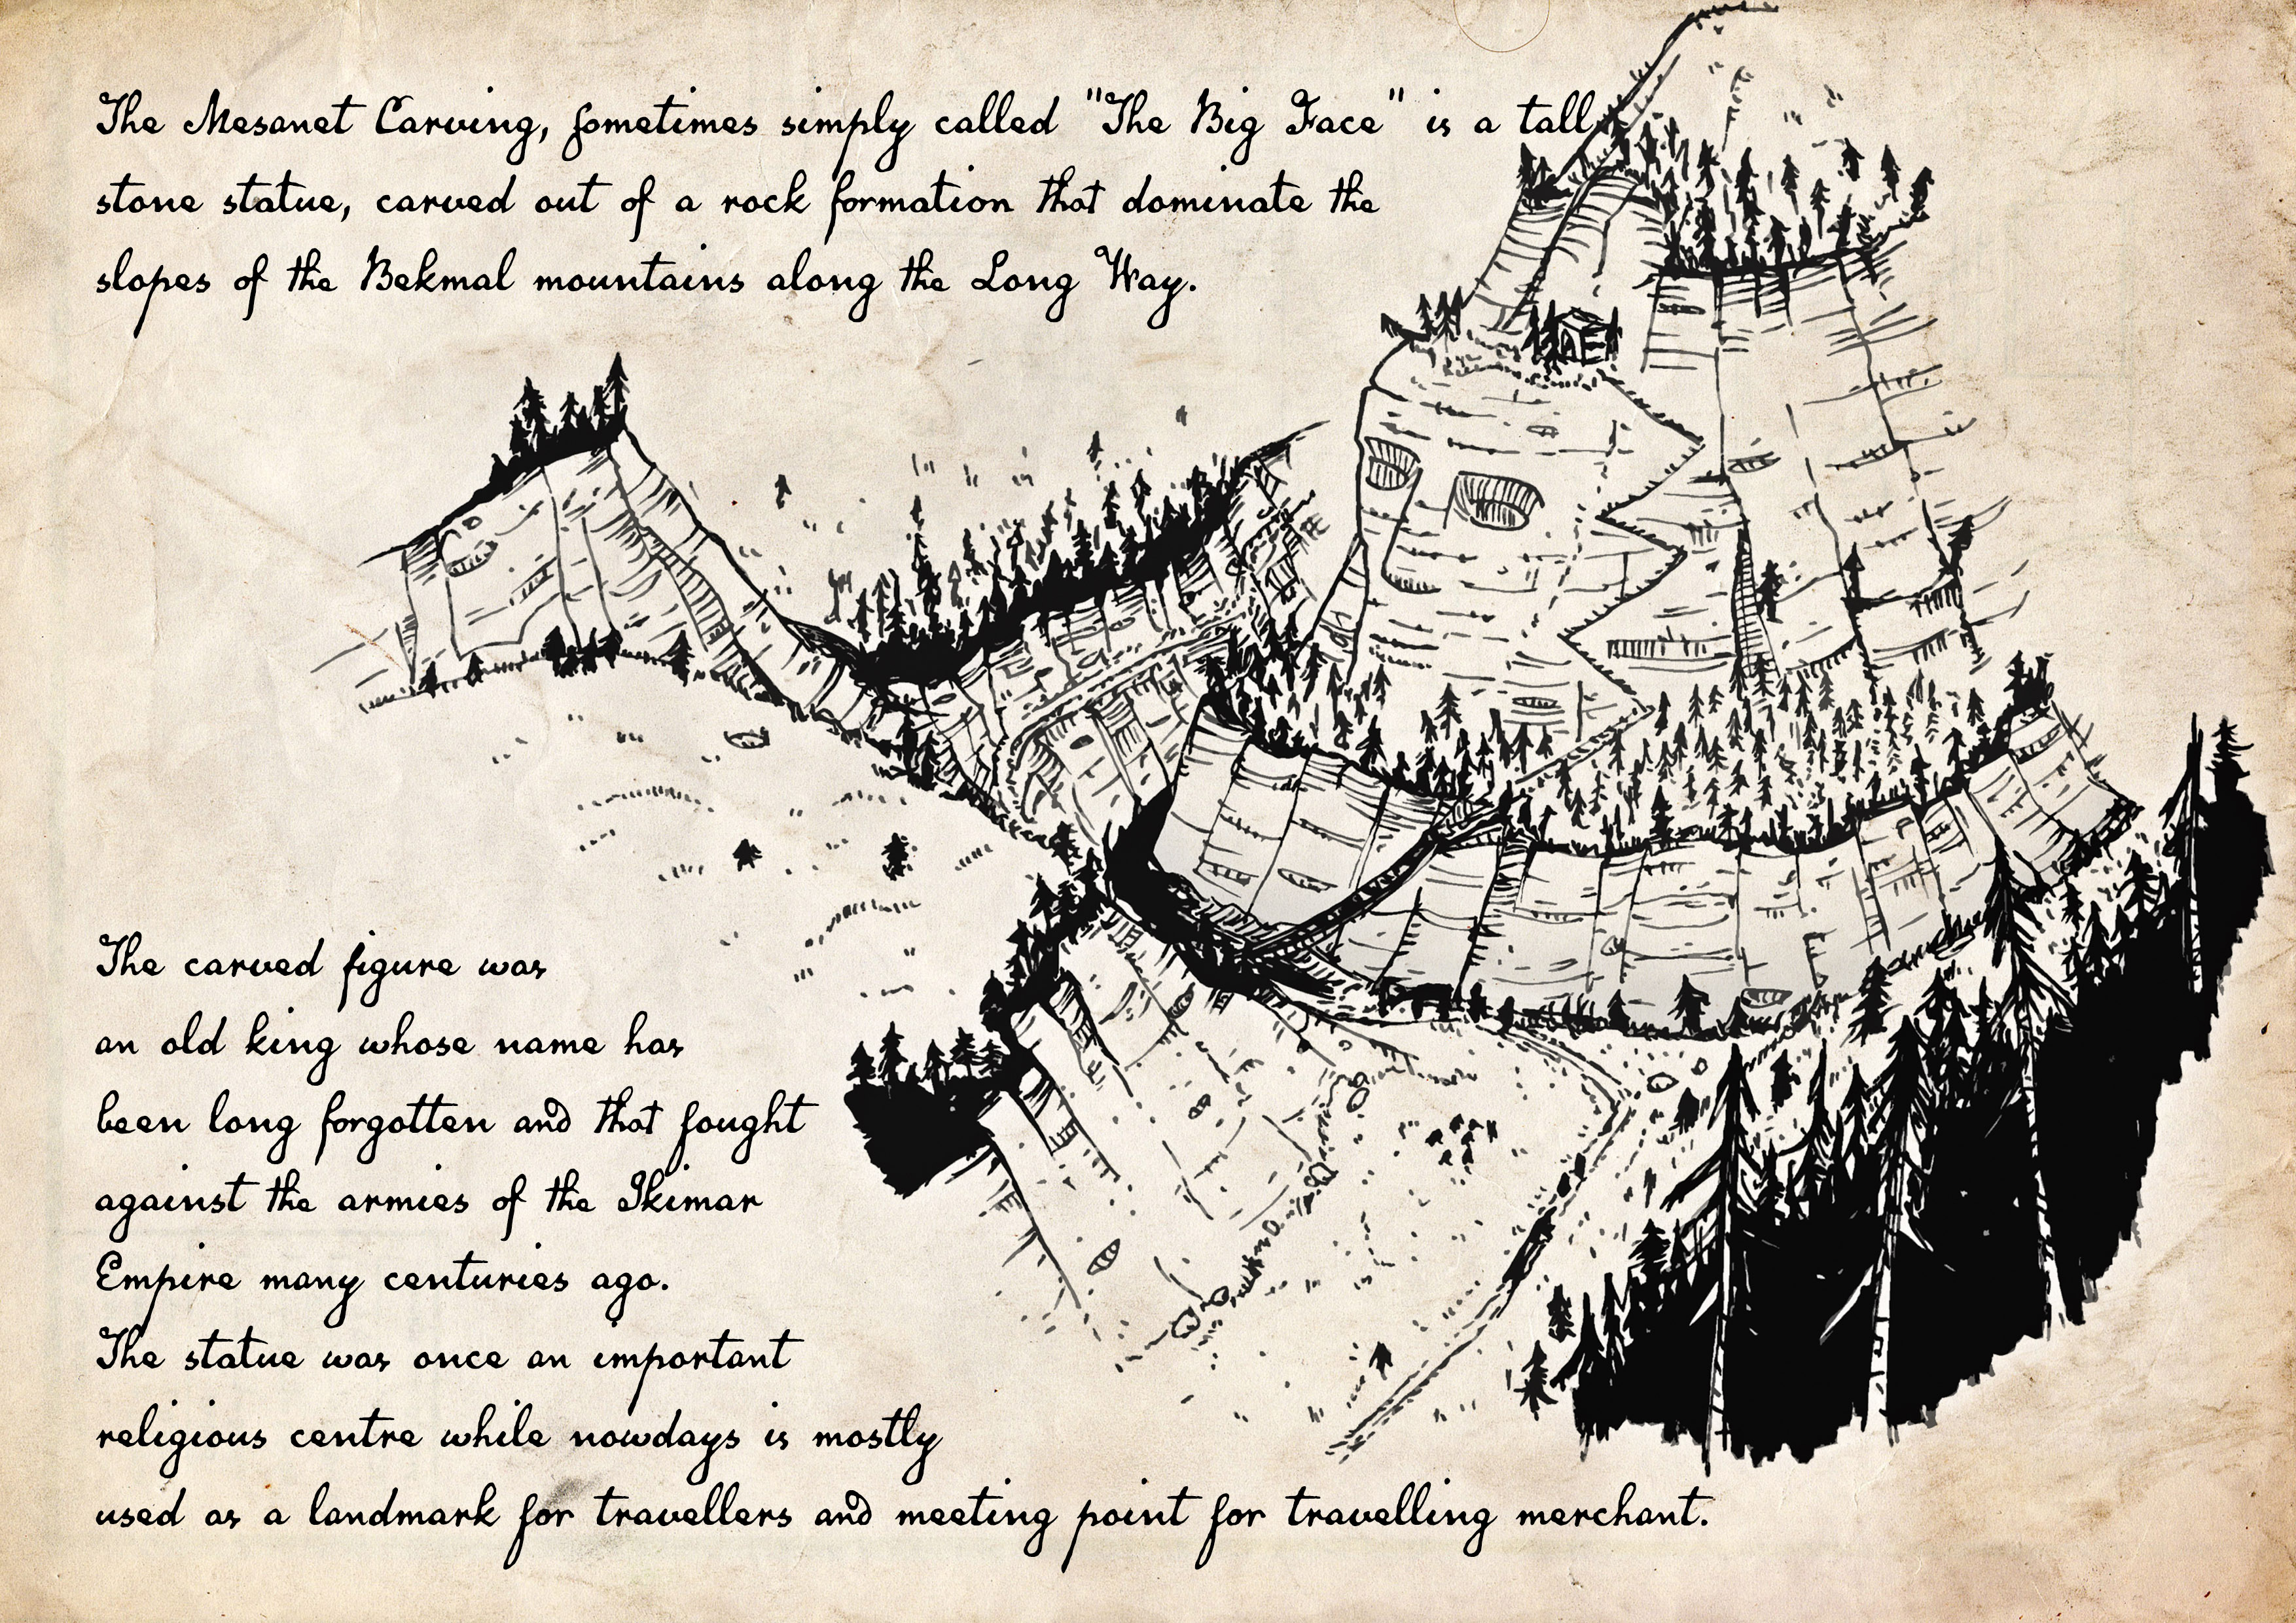 The Mesanet Carving, sometimes simply called "The Big Face" is a tall
stone statue, carved out of a rock formation that dominate the
slopes of the Bekmal mountains along the Long Way.
The carved figure was
an old king whose name has
been long forgotten and that fought
against the armies of the Ikimar
Empire many centuries ago.
The statue was once an important
religious centre while nowdays is mostly
used as a landmark for travellers and meeting point for travelling merchant.